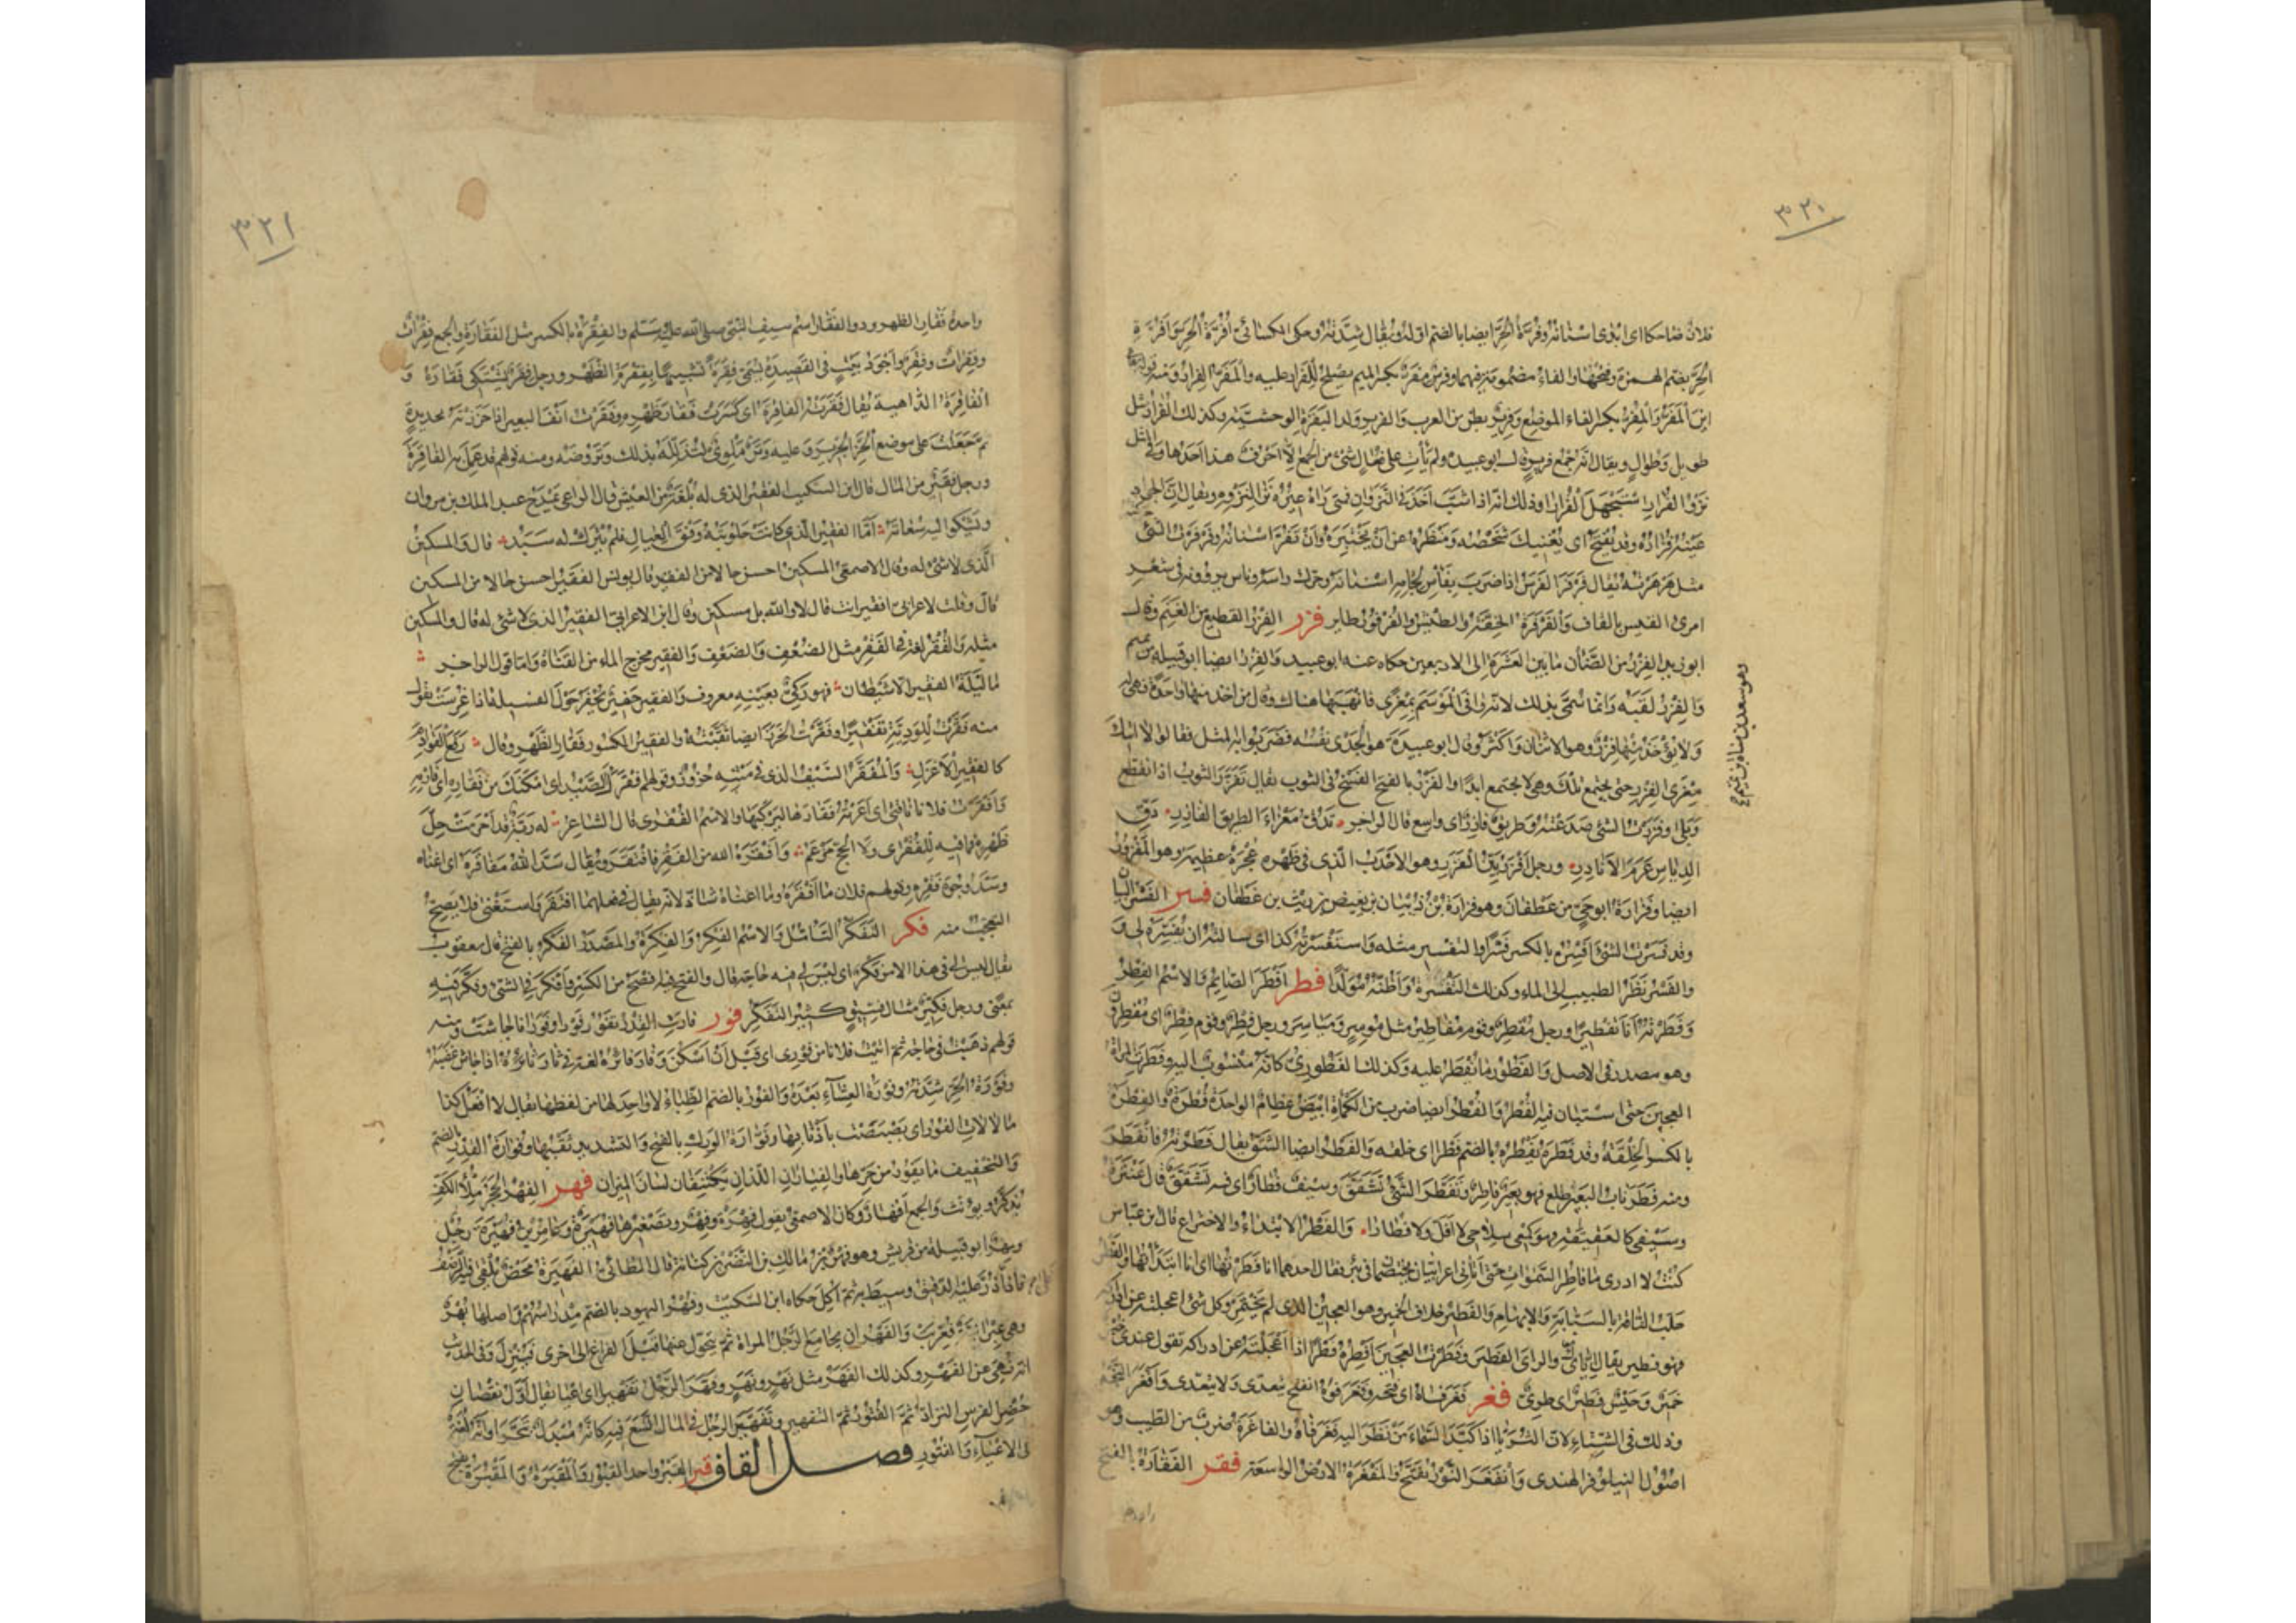 ٣٢٠
فلانٌ ضاحكا اى ابدى اسنانه وفُرَّةُ الحَرّ ايضا بالضم اوله ويقال شدّته وحكى الكسائى اُفُرَّةُ الحر واَفُرَّةِ
الحَرّ بضم الهمزة وفتحها والفاء مضمومة فيهما وفرس مفَرّ بكسر الميم يصلح للفرار عليه والمَفَرّ الفرار ومنه قوله تعالى
اين المَفَرّ والمفِرّ بكسر الفاء الموضع وفرير بطن من العرب والفرير ولد البقرة الوحشيّة وكذلك الفُرار مثل
طويل وطُوال ويقال انه جمع فرير قال ابو عبيدة ولم يأت على فُعالٍ شئ من الجمع الا احرف هذا احدها وفى المثل
نَزْوُ الفُرارِ اسْتَجْهَلَ الفُرارا وذلك انه اذا شبّ اخذ فى النزوان فمتى رآه غيره نزا لنزوه ويقال ان الجواد
عينه فُراره وقد يُفتح اى يُغنيك شخصه ومنظره عن ان تختبره وان تفرّ اسنانه وفرفرت الشئ
مثل هَرهَرته يقال فرفر الفرس اذا ضرب بفأس لجامه اسنانه وحرّك راسه وناس يروونه فى شعر
امرئ القيس بالقاف والفَرفَرة الخفّة والطيش والفُرفور طاير فزر الفِزر القطيع من الغنم وقال
ابو زيد الفِزر من الضأن ما بين العشرة الى الاربعين حكاه عنه ابو عبيد والفِزر ايضا ابو قبيلة من تميم
وهو سعد بن زيد مناة بن تميم
والفِزر لقبه وانما سُمّى بذلك لانه وافى الموسم بمِعزى فانهبها هناك وقال من اخذ منها واحدة فهى له
ولا يؤخذ منها فِزر وهو الاثنان واكثر وقال ابو عبيدة هو الجَدى نفسه فضربوا به المثل فقالوا لا اتيك
مِعزى الفِزر حتى تجتمع تلك وهى لا تجتمع ابدًا والفَزر بالفتح الفسخ فى الثوب يقال تفزّر الثوب اذا انقطع
وبَلِى وفزرت الشئ صدعته وطريق فازر اى واسع قال الراجز تدقّ معزاء الطريق الفازر دقّ
الدياس عَرَمَ الانادر ورجل افزر بيّن الفَزَر وهو الاحدب الذى فى ظهره عُجرة عظيمة وهو المفزور
ايضا وفزارة ابو حىّ من غطفان وهو فزارة بن ذبيان بن بغيض بن ريث بن غطفان فسر الفَسر البيان
وقد فسرت الشئ افسره بالكسر فسرا والتفسير مثله واستفسرته كذا اى سالته ان يفسّره لى و
والفَسر نظر الطبيب الى الماء وكذلك التفسرة واظنّه مولّدا فطر افطر الصائم والاسم الفِطر
وفطّرته انا تفطيرا ورجل مُفطر وقوم مفاطير مثل موسر ومياسير ورجل فِطر وقوم فِطر اى مفطرون
وهو مصدر فى الاصل والفَطور ما يُفطر عليه وكذلك الفَطورى كانه منسوب اليه وفطرت المراة
العجين حتى استبان فيه الفُطر والفُطر ايضا ضرب من الكمأة ابيض عظام الواحدة فُطرة والفِطرة
بالكسر الخلقة وقد فطره يفطُره بالضم فطرا اى خلقه والفَطر ايضا الشقّ يقال فطرته فانفطر
ومنه فطر ناب البعير طلع فهو بعير فاطر وتفطّر الشئ تشقّق وسيف فُطار اى فيه تشقّق قال عنترة
وسيفى كالعقيقة وهو كِمعى سلاحى لا افلّ ولا فُطارا والفَطر الابتداء والاختراع قال ابن عباس
كنت لا ادرى ما فاطر السموات حتى اتانى اعرابيان يختصمان فى بئر فقال احدهما انا فطرتها اى انا ابتداتها والفَطر
حلب الناقة بالسبّابة والابهام والفطير خلاف الخمير وهو العجين الذى لم يختمر وكل شئ اعجلته عن ادراكه
فهو فطير يقال اياى والراى الفطير وفطرت العجين افطره فطرا اذا اعجلته عن ادراكه تقول عندى خبز
خمير وحَيس فطير اى طرى فغر فغر فاه اى فتحه وفغر فوه انفتح يتعدى ولا يتعدى وافغر النجم
وذلك فى الشتاء لان الثريّا اذا كبّد السماء من نظر اليه فغر فاه والفاغرة ضرب من الطيب وهو
اصول النيلوفر الهندى وانفغر النَّور تفتّح والمَفغَرة الارض الواسعة فقر الفَقارة بالفتح
٣٢١
واحدة فَقار الظهر وذو الفَقار اسم سيف النبى صلى الله عليه وسلم والفِقرة بالكسر مثل الفَقارة والجمع فِقْرات
وفِقَرات وفِقَر واجود بيت فى القصيدة يسمى فِقرة تشبيها بفِقرة الظهر ورجل فَقِر يشتكى فَقاره و
الفاقرة الداهية يقال فقرته الفاقرة اى كسرت فَقار ظهره وفقرت انف البعير اذا حززته بحديدة
ثم جعلت على موضع الحزّ الجرير وعليه وتر ملوى لتذلّله بذلك وتروضه ومنه قولهم قد عمل به الفاقرة
ورجل فقير من المال قال ابن السكيت الفقير الذى له بُلغة من العيش قال الراعى يمدح عبد الملك بن مروان
ويشكو اليه سُعاته اما الفقير الذى كانت حلوبته وفق العيال فلم يترك له سبد قال والمسكين
الذى لا شئ له وقال الاصمعى المسكين احسن حالا من الفقير وقال يونس الفقير احسن حالا من المسكين
قال وقلت لاعرابى افقير انت قال لا والله بل مسكين وقال ابن الاعرابى الفقير الذى لا شئ له قال والمسكين
مثله والفُقر لغة فى الفَقر مثل الضُعف والضَعف والفقير مخرج الماء من القناة واما قول الراجز
ما ليلة الفقير الا شيطان فهو ركىّ بعينه معروف والفقير حفير يُحفر حول الفسيلة اذا غُرست تقول
منه فقّرت للوديّة تفقيرا وفقّرت الخرز ايضا ثقّبته والفقير المكسور فَقار الظهر وقال رفع القوادم
كالفقير الاعزل والمفقّر السيف الذى فى متنه حزوز وقولهم افقرك الصيد اى امكنك من فَقاره اى فارمه
وافقرت فلانا ناقتى اى اعرته فَقارها ليركبها والاسم الفُقرى قال الشاعر له ربّة قد احرمت حِلّ
ظهره فما فيه للفُقرى ولا الحجّ مزعم وافقره الله من الفَقر فافتقر ويقال سدّ الله مفاقره اى اغناه
وسدّ وجوه فقره وقولهم فلان ما افقره وما اغناه شاذّ لانه يقال فى فعلهما افتقر واستغنى فلا يصحّ
التعجّب منه فكر التفكّر التامّل والاسم الفِكر والفِكرة والمصدر الفَكر بالفتح قال يعقوب
يقال ليس لى فى هذا الامر فَكر اى ليس لى فيه حاجة قال والفتح فيه افصح من الكسر وافكر فى الشئ وفكّر فيه
بمعنى ورجل فِكّير مثال فِسّيق كثير التفكّر فور فارت القدر تفور فورا وفَوَرانا جاشت ومنه
قولهم ذهبت فى حاجة ثم اتيت فلانا من فورى اى قبل ان اسكن وفار فائره لغة فى ثار ثائره اذا جاش غضبه
وفورة الحر شدّته وفورة العشاء بعده والفُور بالضم الظباء لا واحد لها من لفظها يقال لا افعل كذا
ما لألأت الفُور اى بصبصت باذنابها وفوّارة الورك بالفتح والتشديد ثَقبها وفُوارة القدر بالضم
والتخفيف ما يفور من حرّها والفِياران اللذان يكتنفان لسان الميزان فهر الفِهر الحجر ملء الكفّ
يذكّر ويؤنّث والجمع افهار وكان الاصمعى يقول فِهرة وفِهر وتصغيرها فُهيرة وعامر بن فُهيرة رجل
وفهر ابو قبيلة من قريش وهو فهر بن مالك بن النضر بن كنانة قال الطائى الفهيرة محض يُلقى فيه الرضف
فاذا غلا ذُرّ عليه الدقيق وسيط به ثم اكل حكاه ابن السكيت وفُهر اليهود بالضم مِدراسهم واصلها بُهر
وهى عبرانية فعُرّبت والفَهر ان يجامع الرجل المراة ثم يتحوّل عنها قبل الفراغ الى اخرى فينزل وفى الحديث
انه نهى عن الفَهر وكذلك الفَهَر مثل نَهْر ونَهَر وفهّر الرجل تفهيرا اى اعيا يقال اوّل نقصان
حُضر الفرس الترادّ ثم الفتور ثم التفهير وتفهّر الرجل فى المال اتّسع فيه كانه مبدل من تبحّر او انه لغة
فى الاعياء والفتور فصل القاف قبر القبر واحد القبور والمقبَرة والمقبُرة بفتح